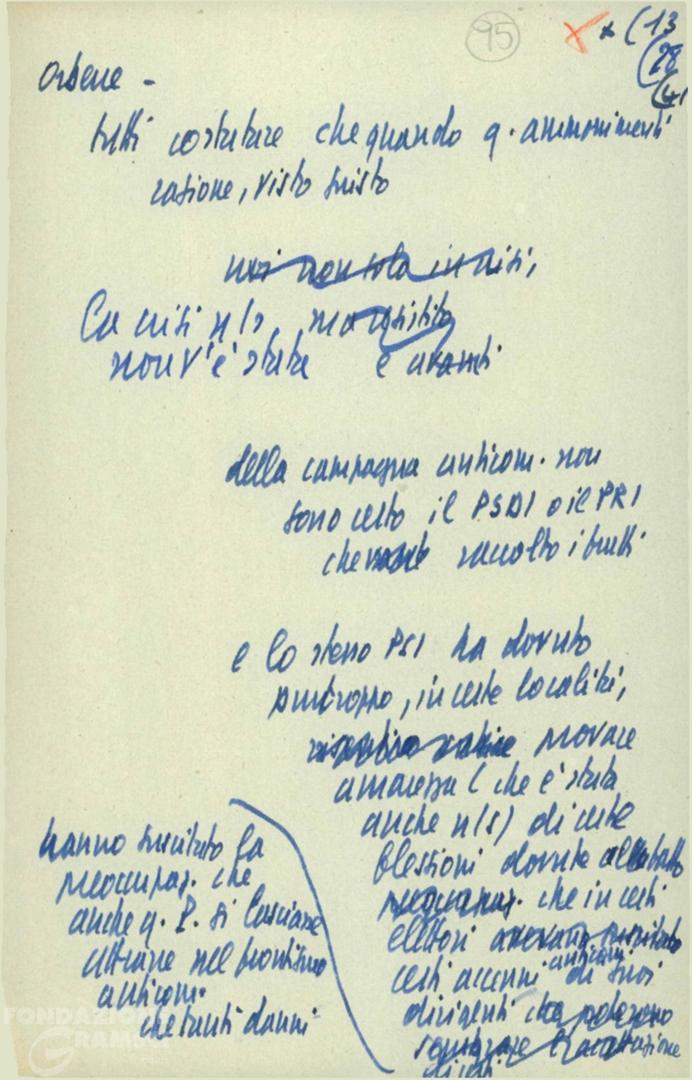 95
x (13
(28
(41
Orbene -
tutti constatare che quando q. ammonimenti
ragione, visto giusto
noi non sola in crisi,
La crisi n/s
non v'è stata e avanti
della campagna anticom. non
sono certo il PSDI o il PRI
che raccolto i frutti
e lo stesso PSI ha dovuto
purtroppo, in certe località,
provare
amarezza ( che è stata
anche n(s) di certe
flessioni dovute al fatto
preoccupaz. che in certi
elettori avevano suscitato
certi accenni anticom. di suoi
dirigenti che potevano
hanno suscitato la
preoccupaz. che
anche q. P. si lasciasse
attrarre nel frontismo
anticom.
che tanti danni
FONDAZIONE
GRAMSCI